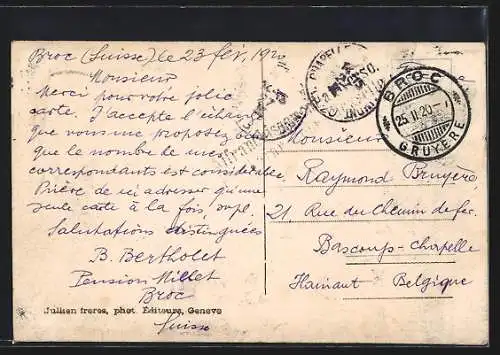 Broc (Suisse) le 23 fév. 1920
Monsieur
Merci pour votre jolie
carte. J'accepte l'échange
que vous me proposez
que le nombre de mes
correspondants est considérable
Prière de ne m'adresser qu'une
seule carte à la fois, svpl.
Salutations distinguées
B. Bertholet
Pension Millet
Broc
Suisse
Jullien freres, phot. Éditeurs, Geneve
BROC
25.II.20
GRUYÈRE
CHAPELLE
Monsieur
Raymond Bruyère
21, Rue du Chemin de fer
Bascoup-Chapelle
Hainaut Belgique